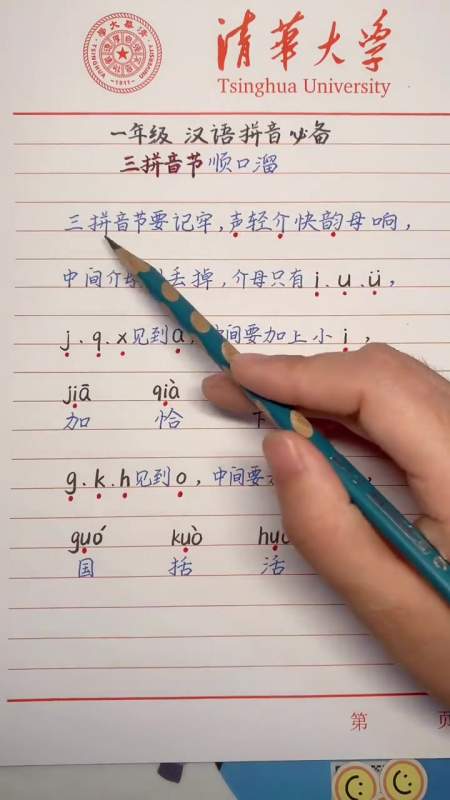 清華大学
Tsinghua University
TSINGHUA UNIVERSITY
·1911·
一年级 汉语拼音必备
三拼音节顺口溜
三拼音节要记牢，声轻介快韵母响，
中间介丢掉，介母只有i.u.ü，
j.q.x见到a，中间要加上小i，
jiā qià
加 恰 下
g.k.h见到o，中间要
guó kuò hu
国 括 活
第 页